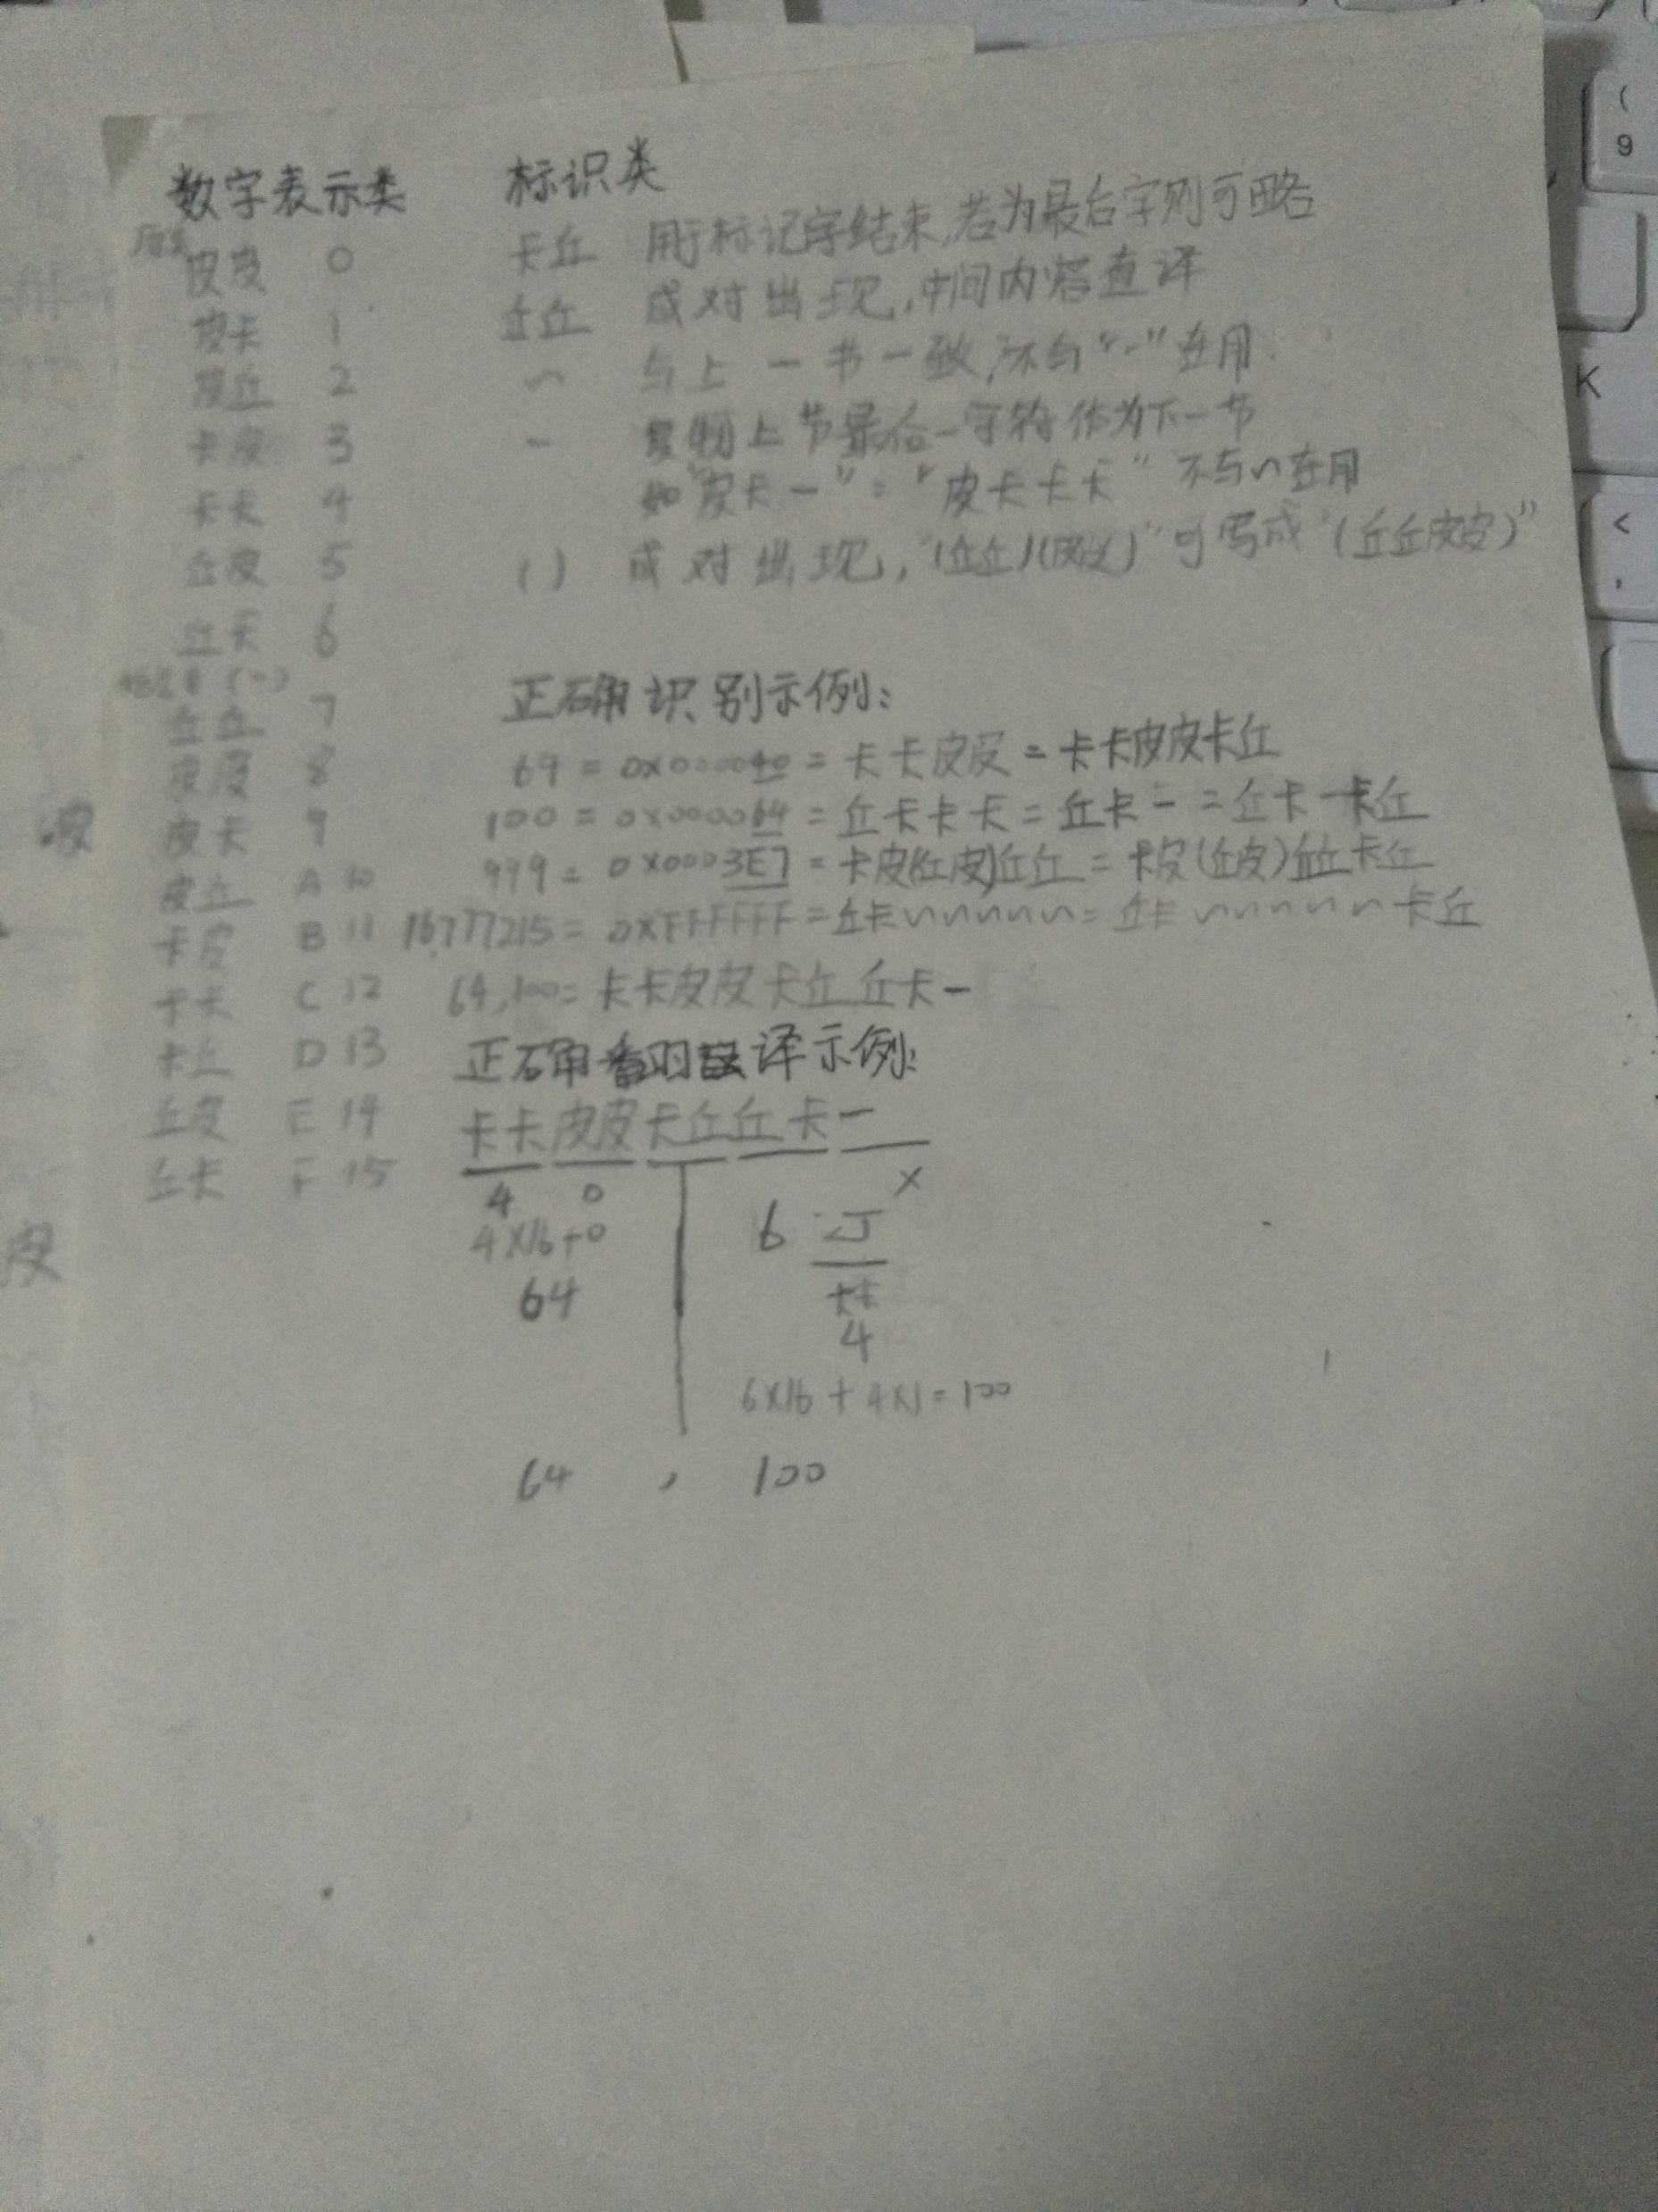 数字表示类
皮皮 0
皮卡 1
皮丘 2
卡皮 3
卡卡 4
丘皮 5
丘卡 6
丘丘 7
皮皮 8
皮卡 9
皮丘 A 10
卡皮 B 11
卡卡 C 12
卡丘 D 13
丘皮 E 14
丘卡 F 15
标识类
卡丘 用于标记字结束,若为最后字则可略
丘丘 成对出现,中间内容直译
~ 与上一节一致,不与“-”连用
- 复制上节最后一字符作为下一节
如“皮卡-”=“皮卡卡卡” 不与~连用
( ) 成对出现,“(丘丘)(皮皮)”可写成“(丘丘皮皮)”
正确识别示例:
64 = 0x000040 = 卡卡皮皮 = 卡卡皮皮卡丘
100 = 0x000064 = 丘卡卡卡 = 丘卡- = 丘卡-卡丘
999 = 0x0003E7 = 卡皮(丘皮)丘丘 = 卡皮(丘皮)丘丘卡丘
16777215 = 0xFFFFFF = 丘卡~~~~~ = 丘卡~~~~~卡丘
64,100 = 卡卡皮皮卡丘丘卡-
正确翻译示例:
卡卡皮皮卡丘丘卡-
4 0 X
4X16+0 6
64 卡卡
4
6X16+4X1=100
64 , 100
皮
皮
( 9
K
< ,